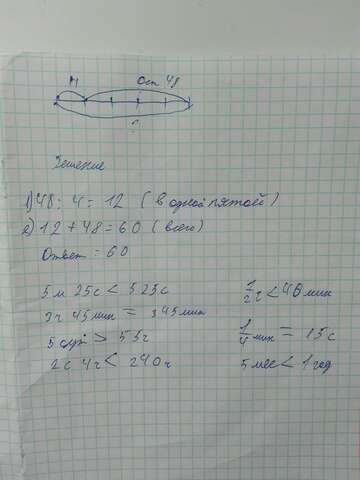 М Ост 48
?
Решение
1) 48 : 4 = 12 (в одной пятой)
2) 12 + 48 = 60 (всего)
Ответ = 60
5 м 25 с < 525 с
3 ч 45 мин = 345 мин
5 сут > 55 ч
2 с 4 ч < 240 ч
1/2 ч < 40 мин
1/4 мин = 15 с
5 мес < 1 год